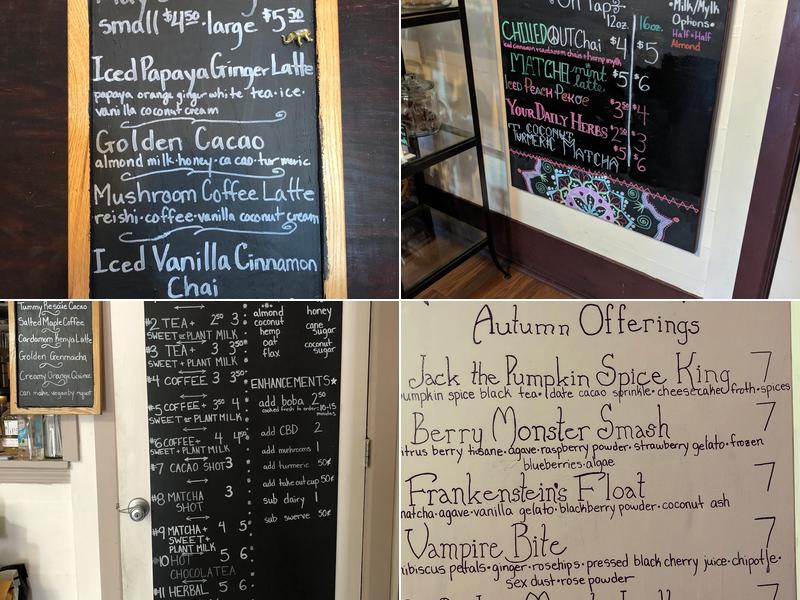 small $4.50 · large $5.50
Iced Papaya Ginger Latte
papaya orange ginger white tea · ice ·
vanilla coconut cream
Golden Cacao
almond milk · honey · cacao · turmeric
Mushroom Coffee Latte
reishi · coffee · vanilla coconut cream
Iced Vanilla Cinnamon
Chai
On Tap
12oz. 16oz.
CHILLED OUT Chai $4 $5
MATCHA mint latte $5 $6
ICED PEACH PEKOE $3.50 $4
YOUR DAILY HERBS $2.50 $3
COCONUT
TURMERIC MATCHA $5 $6
• Milk/Mylk
Options •
Half + Half
Almond
Tummy Rescue Cacao
Salted Maple Coffee
Cardamom Kenya Latte
Golden Genmaicha
can make vegan by request
#2 TEA + 2.50 3
SWEET or PLANT MILK
#3 TEA + 3 3.50
SWEET + PLANT MILK
#4 COFFEE 3 3.50
#5 COFFEE + 3.50 4
SWEET or PLANT MILK
#6 COFFEE + 4 4.50
SWEET + PLANT MILK
#7 CACAO SHOT 3
#8 MATCHA 3
SHOT
#9 MATCHA + 4 5
SWEET +
PLANT MILK
#10 HOT 5 6
CHOCOLATEA
#11 HERBAL 5 6
almond honey
coconut cane
hemp sugar
oat coconut
flax sugar
ENHANCEMENTS★
add boba 2.50
cooked fresh to order: 10-15
minutes
add CBD 2
add mushrooms 1
add turmeric 50¢
add take out cup 50¢
sub dairy 1
sub swerve 50¢
Autumn Offerings
Jack the Pumpkin Spice King 7
pumpkin spice black tea · date cacao sprinkle · cheesecake froth · spices
Berry Monster Smash 7
citrus berry tisane · agave · raspberry powder · strawberry gelato · frozen
blueberries · algae
Frankenstein's Float 7
matcha · agave · vanilla gelato · blackberry powder · coconut ash
Vampire Bite 7
hibiscus petals · ginger · rosehips · pressed black cherry juice · chipotle ·
sex dust · rose powder